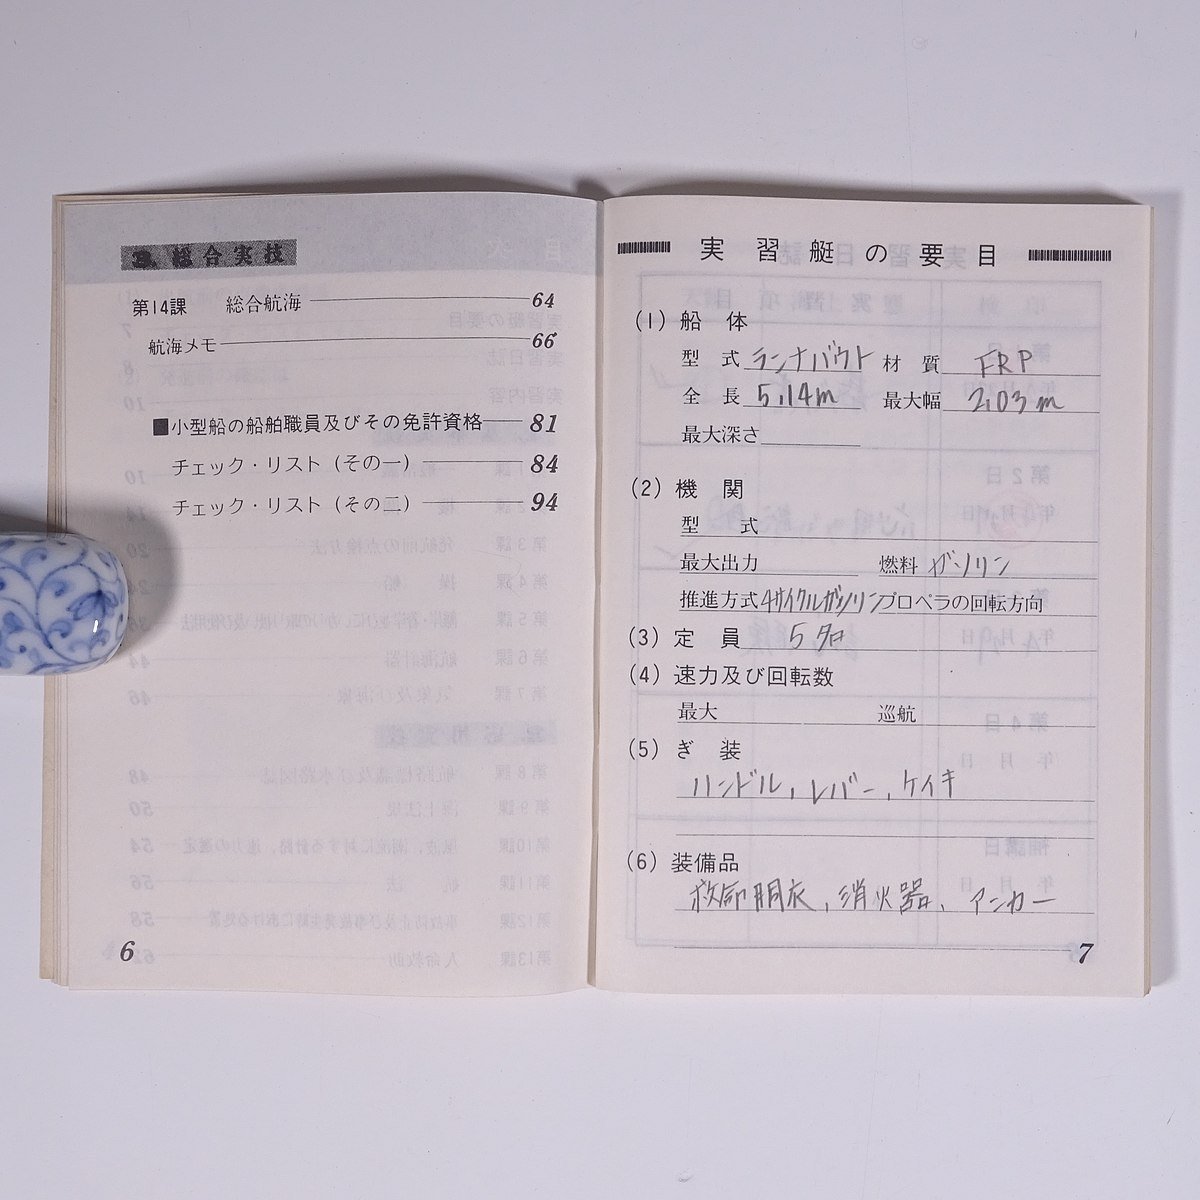 総合実技
第14課 総合航海 64
航海メモ 66
■小型船の船舶職員及びその免許資格 81
チェック・リスト（その一） 84
チェック・リスト（その二） 94
6
実習艇の要目
(1) 船体
型式 ランナバウト 材質 FRP
全長 5.14m 最大幅 2.03m
最大深さ
(2) 機関
型式
最大出力 燃料 ガソリン
推進方式 4サイクルガソリン プロペラの回転方向
(3) 定員 5名
(4) 速力及び回転数
最大 巡航
(5) ぎ装
ハンドル, レバー, ケイキ
(6) 装備品
救命胴衣, 消火器, アンカー
7